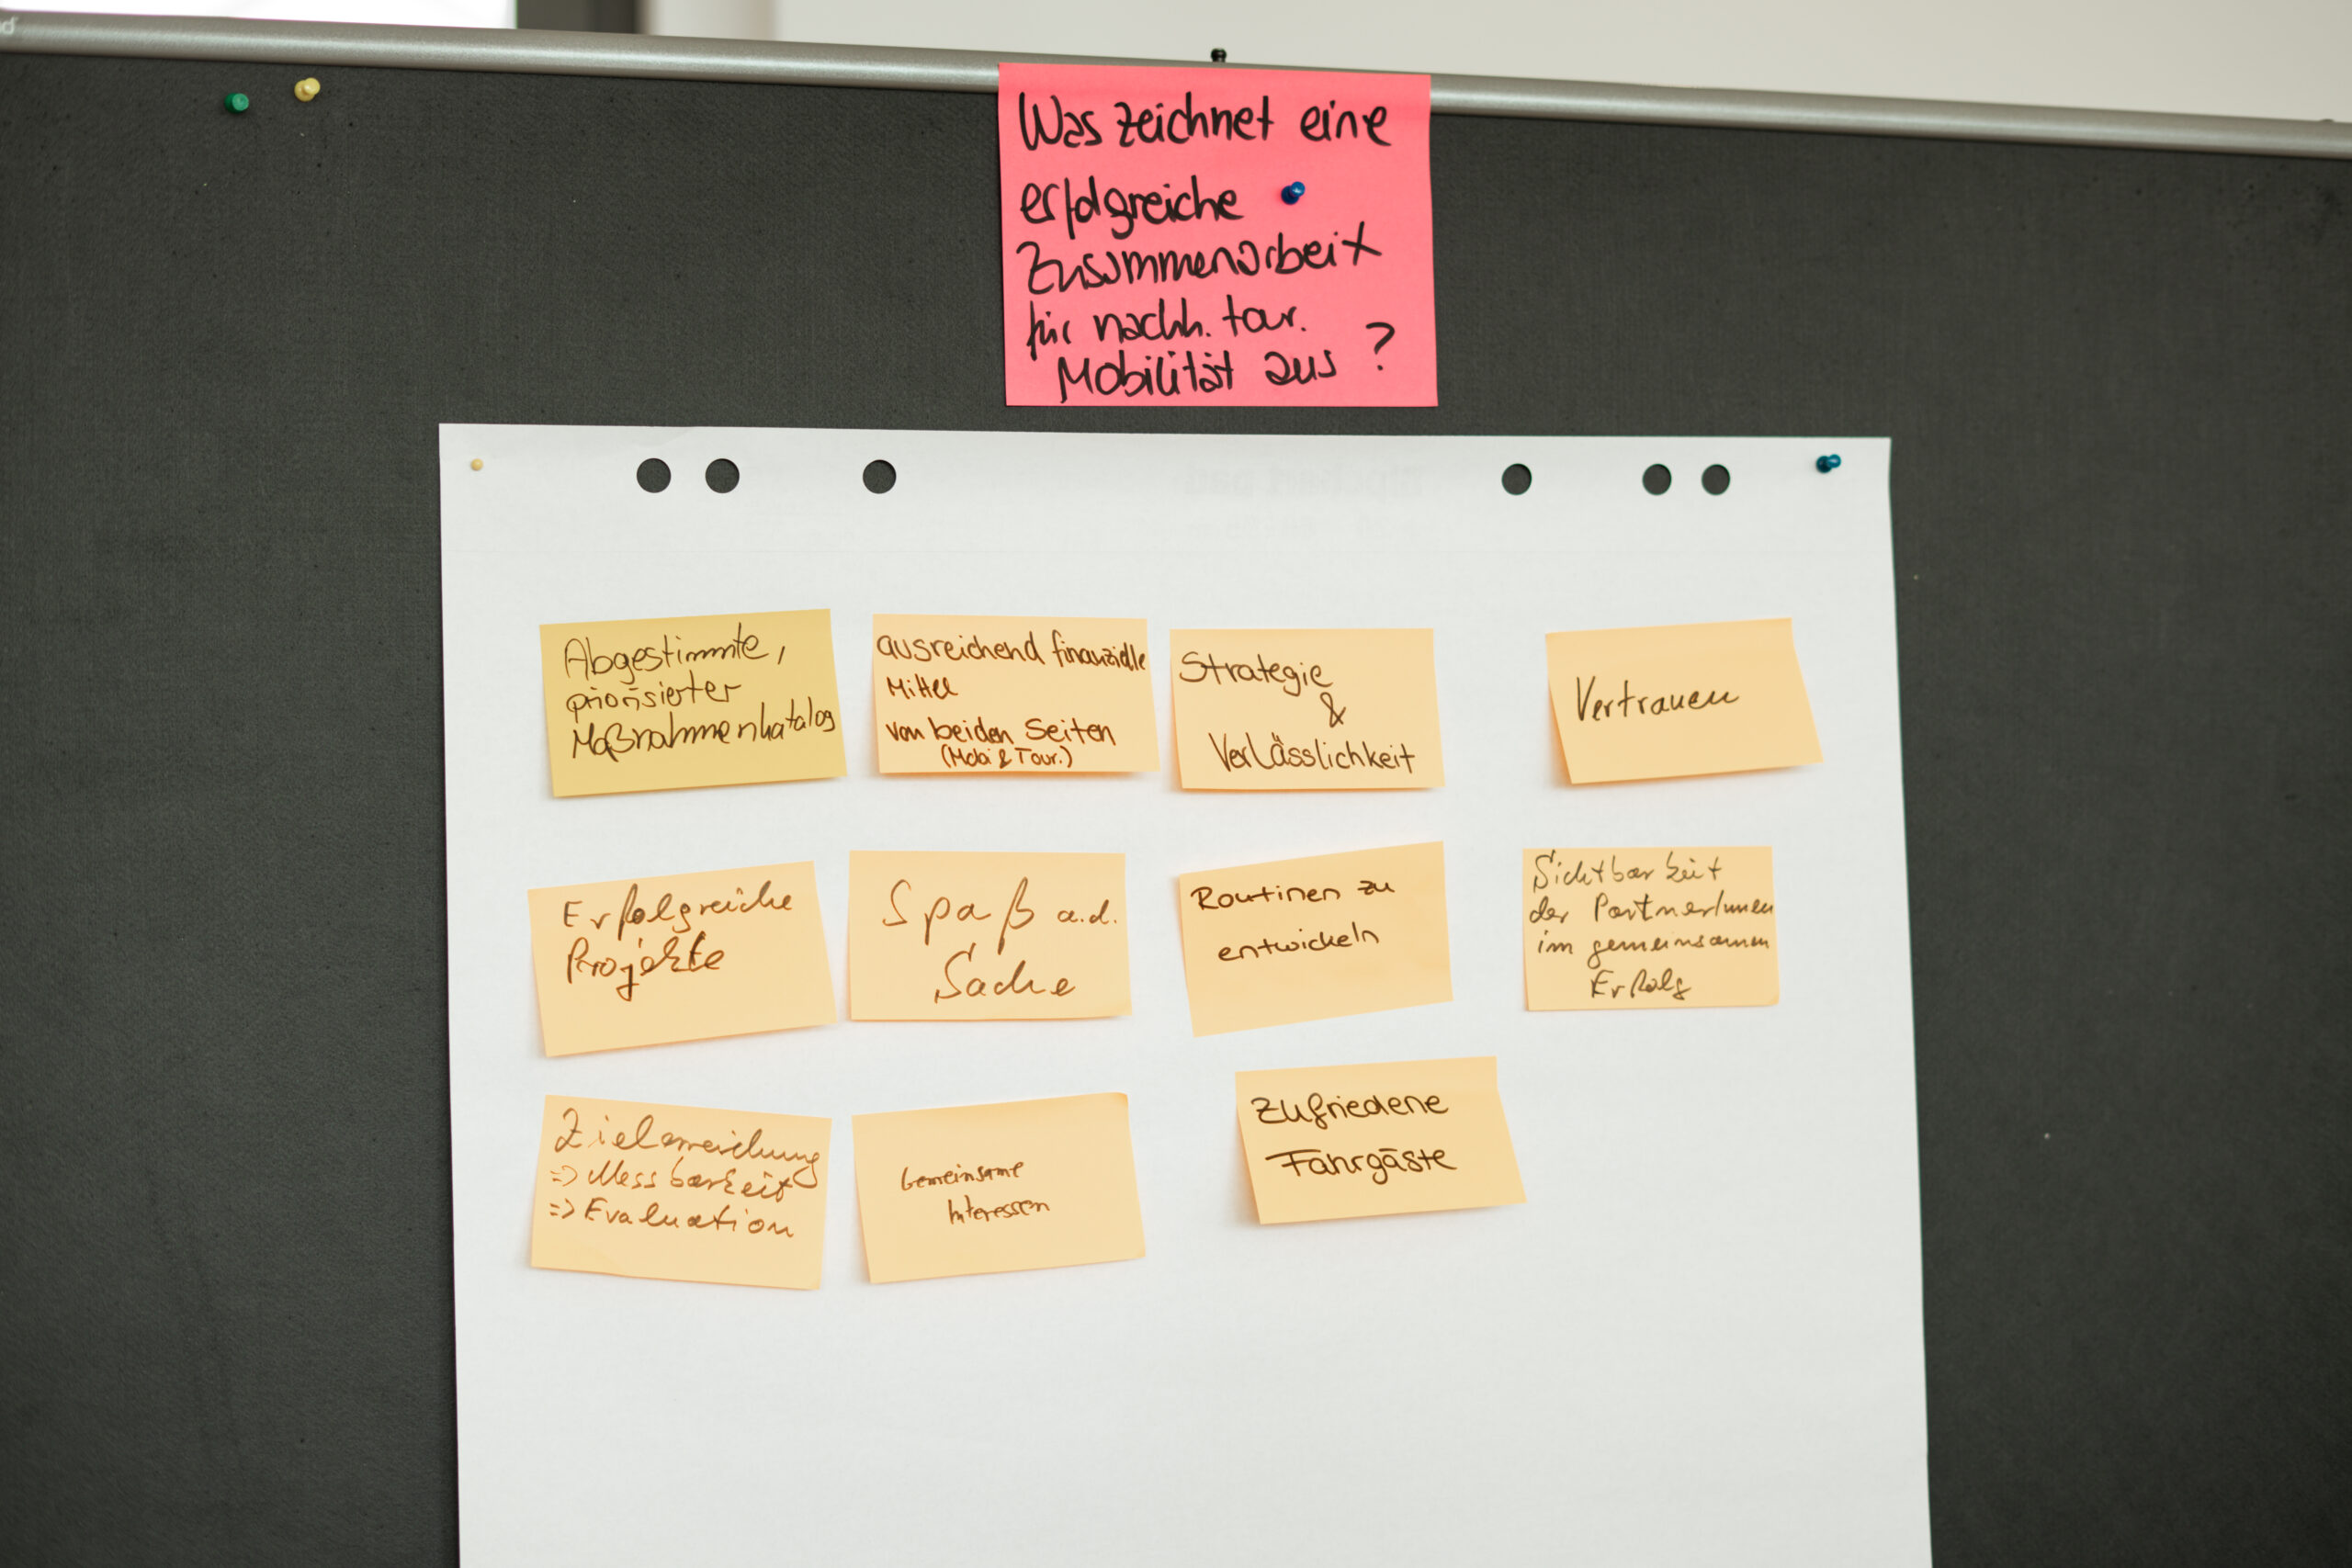 Was zeichnet eine
erfolgreiche
Zusammenarbeit
für nachh. tour.
Mobilität aus ?
Abgestimmte,
priorisierter
Maßnahmenkatalog
ausreichend finanzielle
Mittel
von beiden Seiten
(Mobi & Tour.)
Strategie
&
Verlässlichkeit
Vertrauen
Erfolgreiche
Projekte
Spaß a.d.
Sache
Routinen zu
entwickeln
Sichtbarkeit
der Partner/innen
im gemeinsamen
Erfolg
Zielerreichung
=> Messbarkeit
=> Evaluation
Gemeinsame
Interessen
Zufriedene
Fahrgäste